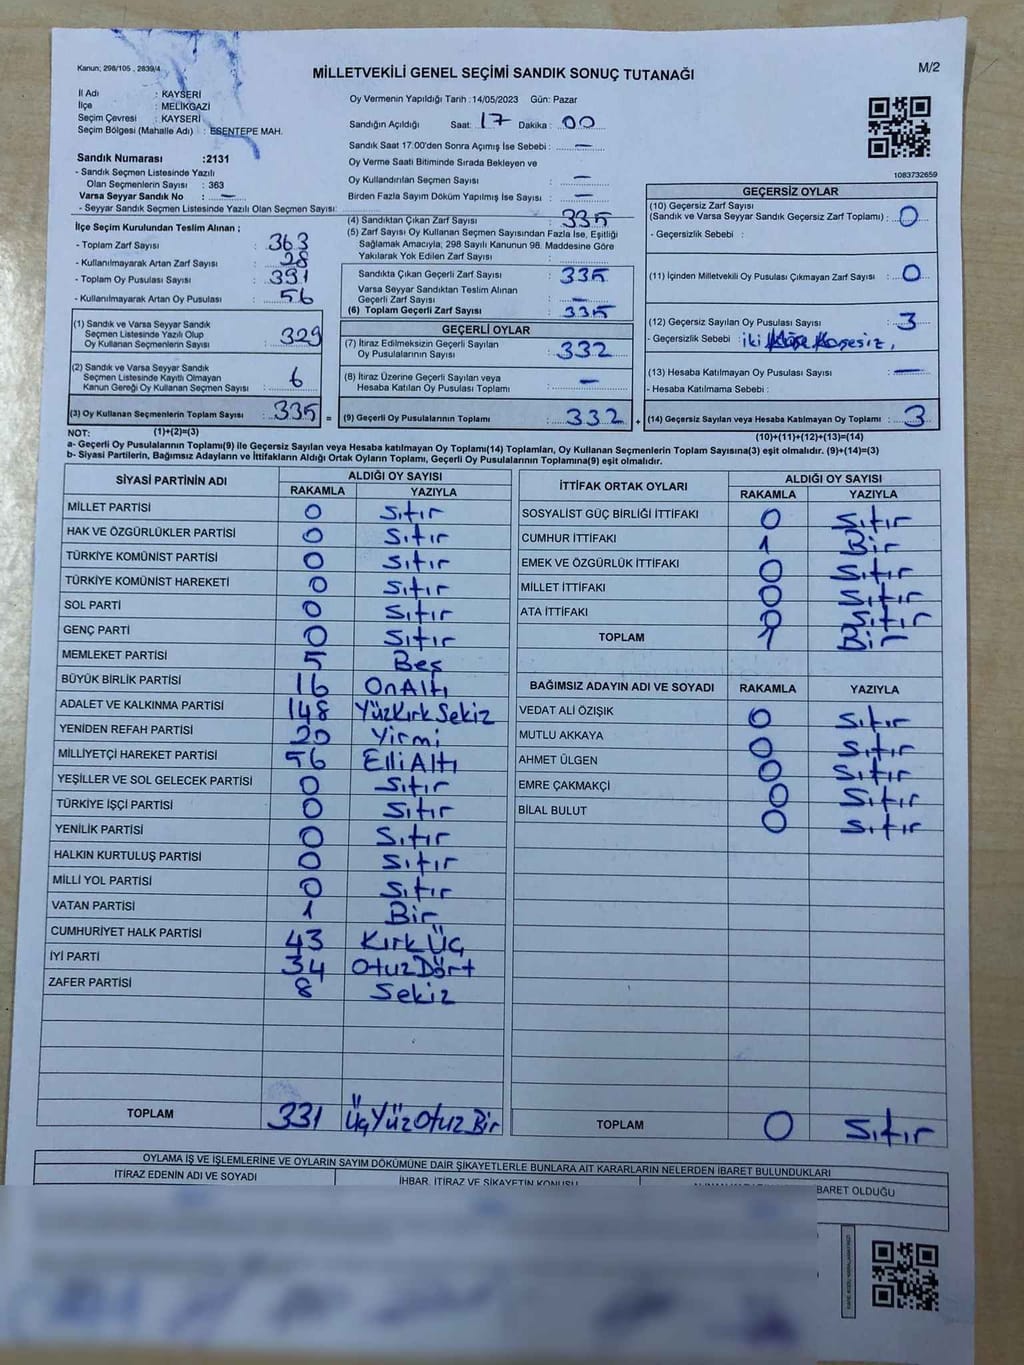 Kanun; 298/105 , 2839/4
MİLLETVEKİLİ GENEL SEÇİMİ SANDIK SONUÇ TUTANAĞI
M/2
İl Adı : KAYSERİ
İlçe : MELİKGAZİ
Seçim Çevresi : KAYSERİ
Seçim Bölgesi (Mahalle Adı) : ESENTEPE MAH.
Sandık Numarası :2131
- Sandık Seçmen Listesinde Yazılı
Olan Seçmenlerin Sayısı : 363
Varsa Seyyar Sandık No : —
- Seyyar Sandık Seçmen Listesinde Yazılı Olan Seçmen Sayısı:
İlçe Seçim Kurulundan Teslim Alınan ;
- Toplam Zarf Sayısı : 363
- Kullanılmayarak Artan Zarf Sayısı : 28
- Toplam Oy Pusulası Sayısı : 391
- Kullanılmayarak Artan Oy Pusulası : 56
(1) Sandık ve Varsa Seyyar Sandık
Seçmen Listesinde Yazılı Olup
Oy Kullanan Seçmenlerin Sayısı : 329
(2) Sandık ve Varsa Seyyar Sandık
Seçmen Listesinde Kayıtlı Olmayan
Kanun Gereği Oy Kullanan Seçmen Sayısı : 6
(3) Oy Kullanan Seçmenlerin Toplam Sayısı : 335 =
Oy Vermenin Yapıldığı Tarih :14/05/2023 Gün: Pazar
Sandığın Açıldığı Saat: 17 Dakika : 00
Sandık Saat 17.00'den Sonra Açımış İse Sebebi : —
Oy Verme Saati Bitiminde Sırada Bekleyen ve
Oy Kullandırılan Seçmen Sayısı : —
Birden Fazla Sayım Döküm Yapılmış İse Sayısı : —
(4) Sandıktan Çıkan Zarf Sayısı : 335
(5) Zarf Sayısı Oy Kullanan Seçmen Sayısından Fazla İse, Eşitliği
Sağlamak Amacıyla; 298 Sayılı Kanunun 98. Maddesine Göre
Yakılarak Yok Edilen Zarf Sayısı :
Sandıkta Çıkan Geçerli Zarf Sayısı : 335
Varsa Seyyar Sandıktan Teslim Alınan
Geçerli Zarf Sayısı : —
(6) Toplam Geçerli Zarf Sayısı : 335
GEÇERLİ OYLAR
(7) İtiraz Edilmeksizin Geçerli Sayılan
Oy Pusulalarının Sayısı : 332
(8) İtiraz Üzerine Geçerli Sayılan veya
Hesaba Katılan Oy Pusulası Toplamı : —
(9) Geçerli Oy Pusulalarının Toplamı : 332 +
1083732659
GEÇERSİZ OYLAR
(10) Geçersiz Zarf Sayısı
(Sandık ve Varsa Seyyar Sandık Geçersiz Zarf Toplamı) : 0
- Geçersizlik Sebebi :
(11) İçinden Milletvekili Oy Pusulası Çıkmayan Zarf Sayısı : 0
(12) Geçersiz Sayılan Oy Pusulası Sayısı : 3
- Geçersizlik Sebebi : iki
(13) Hesaba Katılmayan Oy Pusulası Sayısı : —
- Hesaba Katılmama Sebebi :
(14) Geçersiz Sayılan veya Hesaba Katılmayan Oy Toplamı : 3
NOT: (1)+(2)=(3)
(10)+(11)+(12)+(13)=(14)
a- Geçerli Oy Pusulasının Toplamı(9) ile Geçersiz Sayılan veya Hesaba katılmayan Oy Toplamı(14) Toplamları, Oy Kullanan Seçmenlerin Toplam Sayısına(3) eşit olmalıdır. (9)+(14)=(3)
b- Siyasi Partilerin, Bağımsız Adayların ve İttifakların Aldığı Ortak Oyların Toplamı, Geçerli Oy Pusulalarının Toplamına(9) eşit olmalıdır.
SİYASİ PARTİNİN ADI ALDIĞI OY SAYISI
RAKAMLA YAZIYLA
MİLLET PARTİSİ 0 Sıfır
HAK VE ÖZGÜRLÜKLER PARTİSİ 0 Sıfır
TÜRKİYE KOMÜNİST PARTİSİ 0 Sıfır
TÜRKİYE KOMÜNİST HAREKETİ 0 Sıfır
SOL PARTİ 0 Sıfır
GENÇ PARTİ 0 Sıfır
MEMLEKET PARTİSİ 5 Beş
BÜYÜK BİRLİK PARTİSİ 16 OnAltı
ADALET VE KALKINMA PARTİSİ 148 YüzKırkSekiz
YENİDEN REFAH PARTİSİ 20 Yirmi
MİLLİYETÇİ HAREKET PARTİSİ 56 ElliAltı
YEŞİLLER VE SOL GELECEK PARTİSİ 0 Sıfır
TÜRKİYE İŞÇİ PARTİSİ 0 Sıfır
YENİLİK PARTİSİ 0 Sıfır
HALKIN KURTULUŞ PARTİSİ 0 Sıfır
MİLLİ YOL PARTİSİ 0 Sıfır
VATAN PARTİSİ 1 Bir
CUMHURİYET HALK PARTİSİ 43 Kırk Üç
İYİ PARTİ 34 OtuzDört
ZAFER PARTİSİ 8 Sekiz
TOPLAM 331 ÜçYüzOtuzBir
İTTİFAK ORTAK OYLARI ALDIĞI OY SAYISI
RAKAMLA YAZIYLA
SOSYALİST GÜÇ BİRLİĞİ İTTİFAKI 0 Sıfır
CUMHUR İTTİFAKI 1 Bir
EMEK VE ÖZGÜRLÜK İTTİFAKI 0 Sıfır
MİLLET İTTİFAKI 0 Sıfır
ATA İTTİFAKI 0 Sıfır
TOPLAM 1 Bir
BAĞIMSIZ ADAYIN ADI VE SOYADI RAKAMLA YAZIYLA
VEDAT ALİ ÖZIŞIK 0 Sıfır
MUTLU AKKAYA 0 Sıfır
AHMET ÜLGEN 0 Sıfır
EMRE ÇAKMAKÇİ 0 Sıfır
BİLAL BULUT 0 Sıfır
TOPLAM 0 Sıfır
OYLAMA İŞ VE İŞLEMLERİNE VE OYLARIN SAYIM DÖKÜMÜNE DAİR ŞİKAYETLERLE BUNLARA AİT KARARLARIN NELERDEN İBARET BULUNDUKLARI
İTİRAZ EDENİN ADI VE SOYADI İHBAR, İTİRAZ VE ŞİKAYETİN KONUSU BARET OLDUĞU